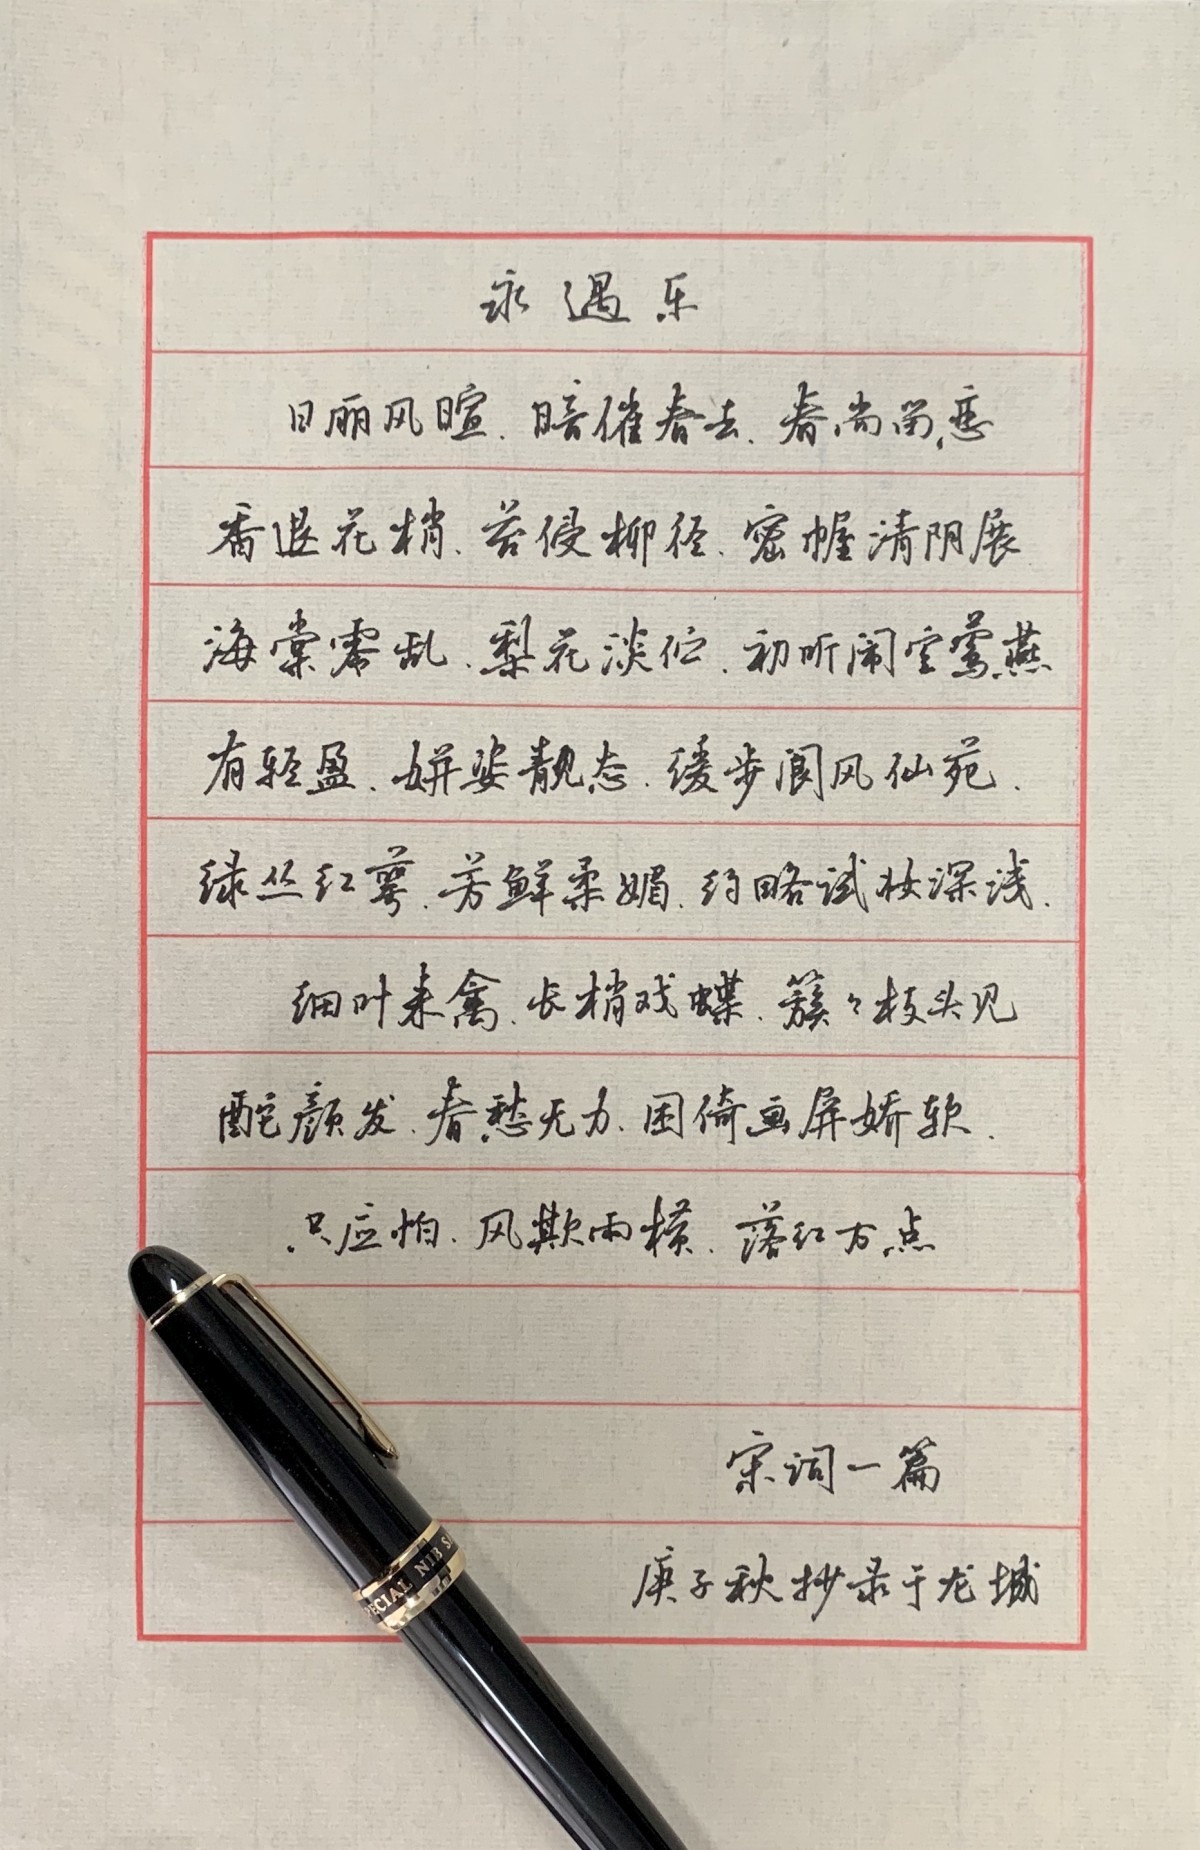 永遇乐
日丽风暄.暗催春去.春尚留恋
香退花梢.苔侵柳径.密幄清阴展
海棠零乱.梨花淡伫.初听闹空莺燕
有轻盈.妍姿靓态.缓步阆风仙苑.
绿丛红萼.芳鲜柔媚.约略试妆深浅.
细叶来禽.长梢戏蝶.簇々枝头见
酡颜发.春愁无力.困倚画屏娇软.
只应怕.风欺雨横.落红万点
宋词一篇
庚子秋抄录于龙城
PECIAL NIB S